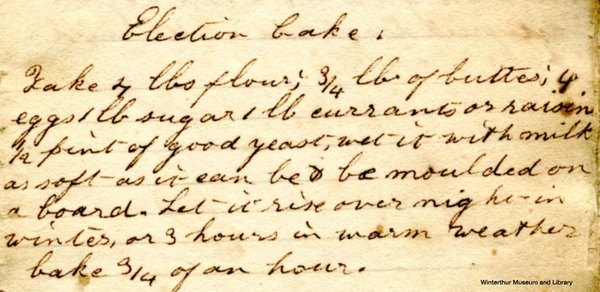 Election Cake.
Take 4 lbs flour; 3/4 lb of butter; 4
eggs 1 lb sugar 1 lb currants or raisin
1/2 pint of good yeast, wet it with milk
as soft as it can be & be moulded on
a board. Let it rise over night in
winter, or 3 hours in warm weather
bake 3/4 of an hour.
Winterthur Museum and Library